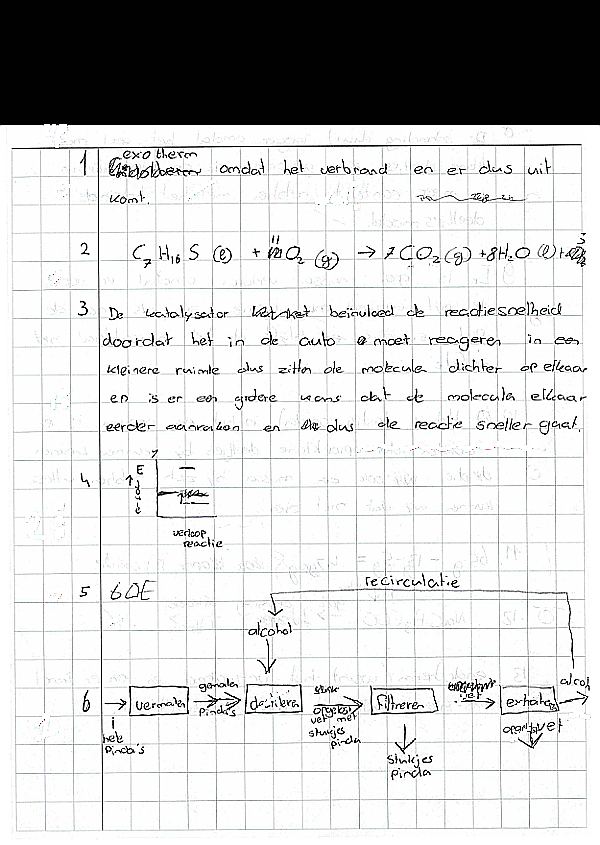 1 exotherm omdat het verbrand en er dus uit
komt.
2 C7H16S (l) + 11 O2 (g) → 7CO2 (g) + 8H2O (l) +
3 De katalysator beïnvloed de reactiesnelheid
doordat het in de auto moet reageren in een
kleinere ruimte dus zitten de moleculen dichter op elkaar
en is er een grotere kans dat de moleculen elkaar
eerder aanraken en dus de reactie sneller gaat.
4 E
verloop
reactie
5 6OE
recirculatie
alcohol
6 vermalen
gemalen
pinda's
hele
pinda's
opgelost
vet met
stukjes
pinda
filtreren
stukjes
pinda
vet
alcohol
vet